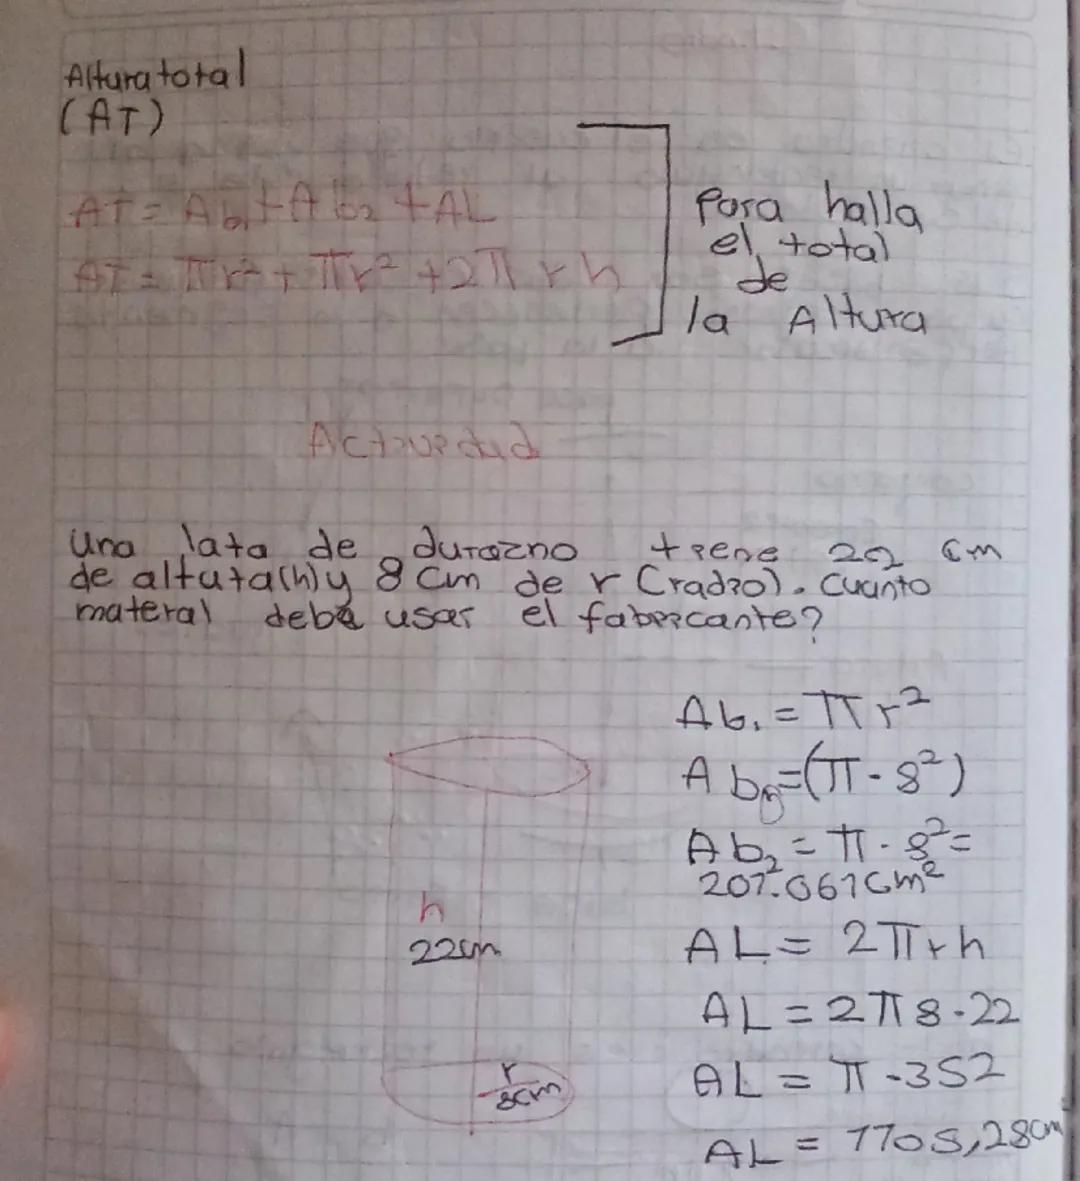 Altura total
(AT)
AT = Ab₁ + Ab₂ + AL
AT = πr² + πr² + 2πrh
para halla
el total
de
la Altura
Actividad
Una lata de durazno tiene 22 cm
de altuta(h) y 8 cm de r (radio). Cuanto
materal debe usar el fabricante?
Ab₁ = πr²
Ab = (π - 8²)
Ab₂ = π . 8² =
207.061 cm²
AL = 2πrh
AL = 2π8.22
AL = π - 352
AL = 1105,28cm
h
22cm
r
8cm